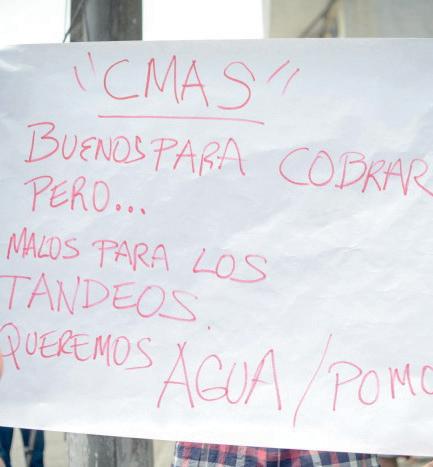 "CMAS"
BUENOS PARA COBRAR
PERO...
MALOS PARA LOS
TANDEOS.
QUEREMOS AGUA / POMO